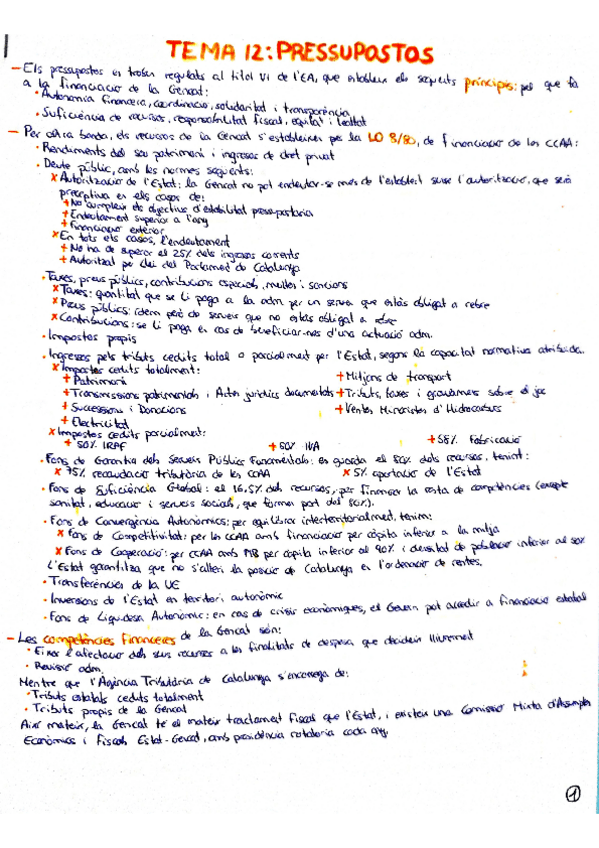 TEMA 12: PRESSUPOSTOS
- Els pressupostos es troben regulats al títol VI de l'EA, que estableix els següents principis: pel que fa
a la financiació de la Gencat:
· Autonomia financera, coordinació, solidaritat i transparència
· Suficiència de recursos, responsabilitat fiscal, equitat i lleialtat
- Per altra banda, els recursos de la Gencat s'estableixen per la LO 8/80, de financiació de les CCAA:
· Rendiments del seu patrimoni i ingressos de dret privat
· Deute públic, amb les normes següents:
x Autorització de l'Estat: la Gencat no pot endeutar-se més de l'establert sense l'autorització, que serà
preceptiva en els casos de:
+ No compleix els objectius d'estabilitat pressupostària
+ Endeutament superior a l'any
+ Financiació exterior
x En tots els casos, l'endeutament
+ No ha de superar el 25% dels ingressos corrents
+ Autoritzat per llei del Parlament de Catalunya
· Taxes, preus públics, contribucions especials, multes i sancions
x Taxes: quantitat que se li paga a la adm per un servei que estàs obligat a rebre
x Preus públics: ídem però de serveis que no estàs obligat a rebre
x Contribucions: se li paga en cas de beneficiar-nos d'una actuació adm.
· Impostos propis
· Ingressos pels tributs cedits total o parcialment per l'Estat, segons la capacitat normativa atribuïda.
x Impostos cedits totalment:
+ Patrimoni + Mitjans de transport
+ Transmissions patrimonials i Actes jurídics documentats + Tributs, taxes i gravàmens sobre el joc
+ Successions i Donacions + Ventes Minoristes d'Hidrocarburs
+ Electricitat
x Impostos cedits parcialment:
+ 50% IRPF + 50% IVA + 58% Fabricació
· Fons de Garantia dels Serveis Públics Fonamentals: es guarda el 80% dels recursos, tenint:
x 75% recaudació tributària de les CCAA x 5% aportació de l'Estat
· Fons de Suficiència Global: el 16,5% dels recursos, per financiar la resta de competències (excepte
sanitat, educació i serveis socials, que formen part del 80%).
· Fons de Convergència Autonòmics: per equilibrar interterritorialment, tenim:
x Fons de Competitivitat: per les CCAA amb financiació per càpita inferior a la mitja
x Fons de Cooperació: per CCAA amb PIB per càpita inferior al 90% i densitat de població inferior al 50%
L'Estat garantitza que no s'alteri la posició de Catalunya en l'ordenació de rentes.
· Transferències de la UE
· Inversions de l'Estat en territori autonòmic
· Fons de Liquidesa Autonòmic: en cas de crisis econòmiques, el Govern pot accedir a financiació estatal
- Les competències financeres de la Gencat són:
· Fixar l'afectació dels seus recursos a les finalitats de despesa que decideixin lliurement
· Revisió adm.
Mentre que l'Agència Tributària de Catalunya s'encarrega de:
· Tributs estatals cedits totalment
· Tributs propis de la Gencat
Així mateix, la Gencat té el mateix tractament fiscal que l'Estat, i existeix una Comissió Mixta d'Assumptes
Econòmics i Fiscals Estat-Gencat, amb presidència rotatòria cada any.
1